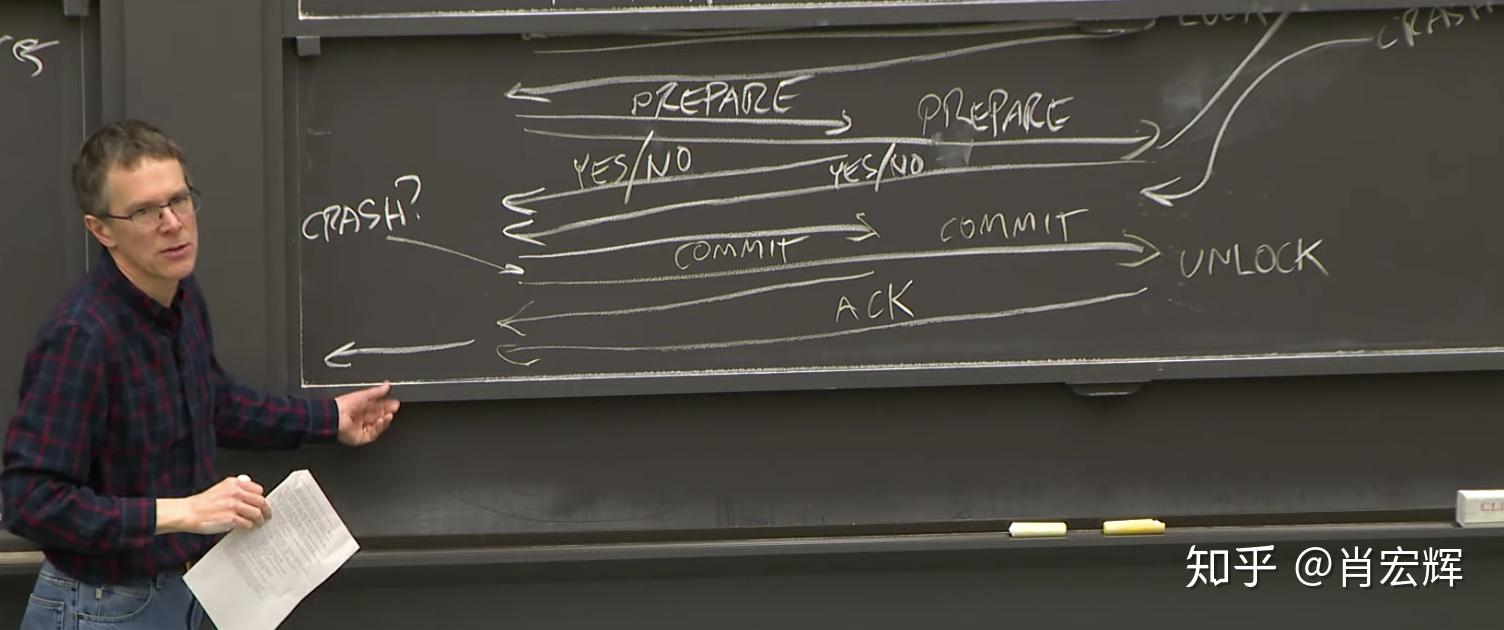 LOCK
CRASH
PREPARE
PREPARE
YES/NO
YES/NO
CRASH?
COMMIT
COMMIT
UNLOCK
ACK
知乎 @肖宏辉